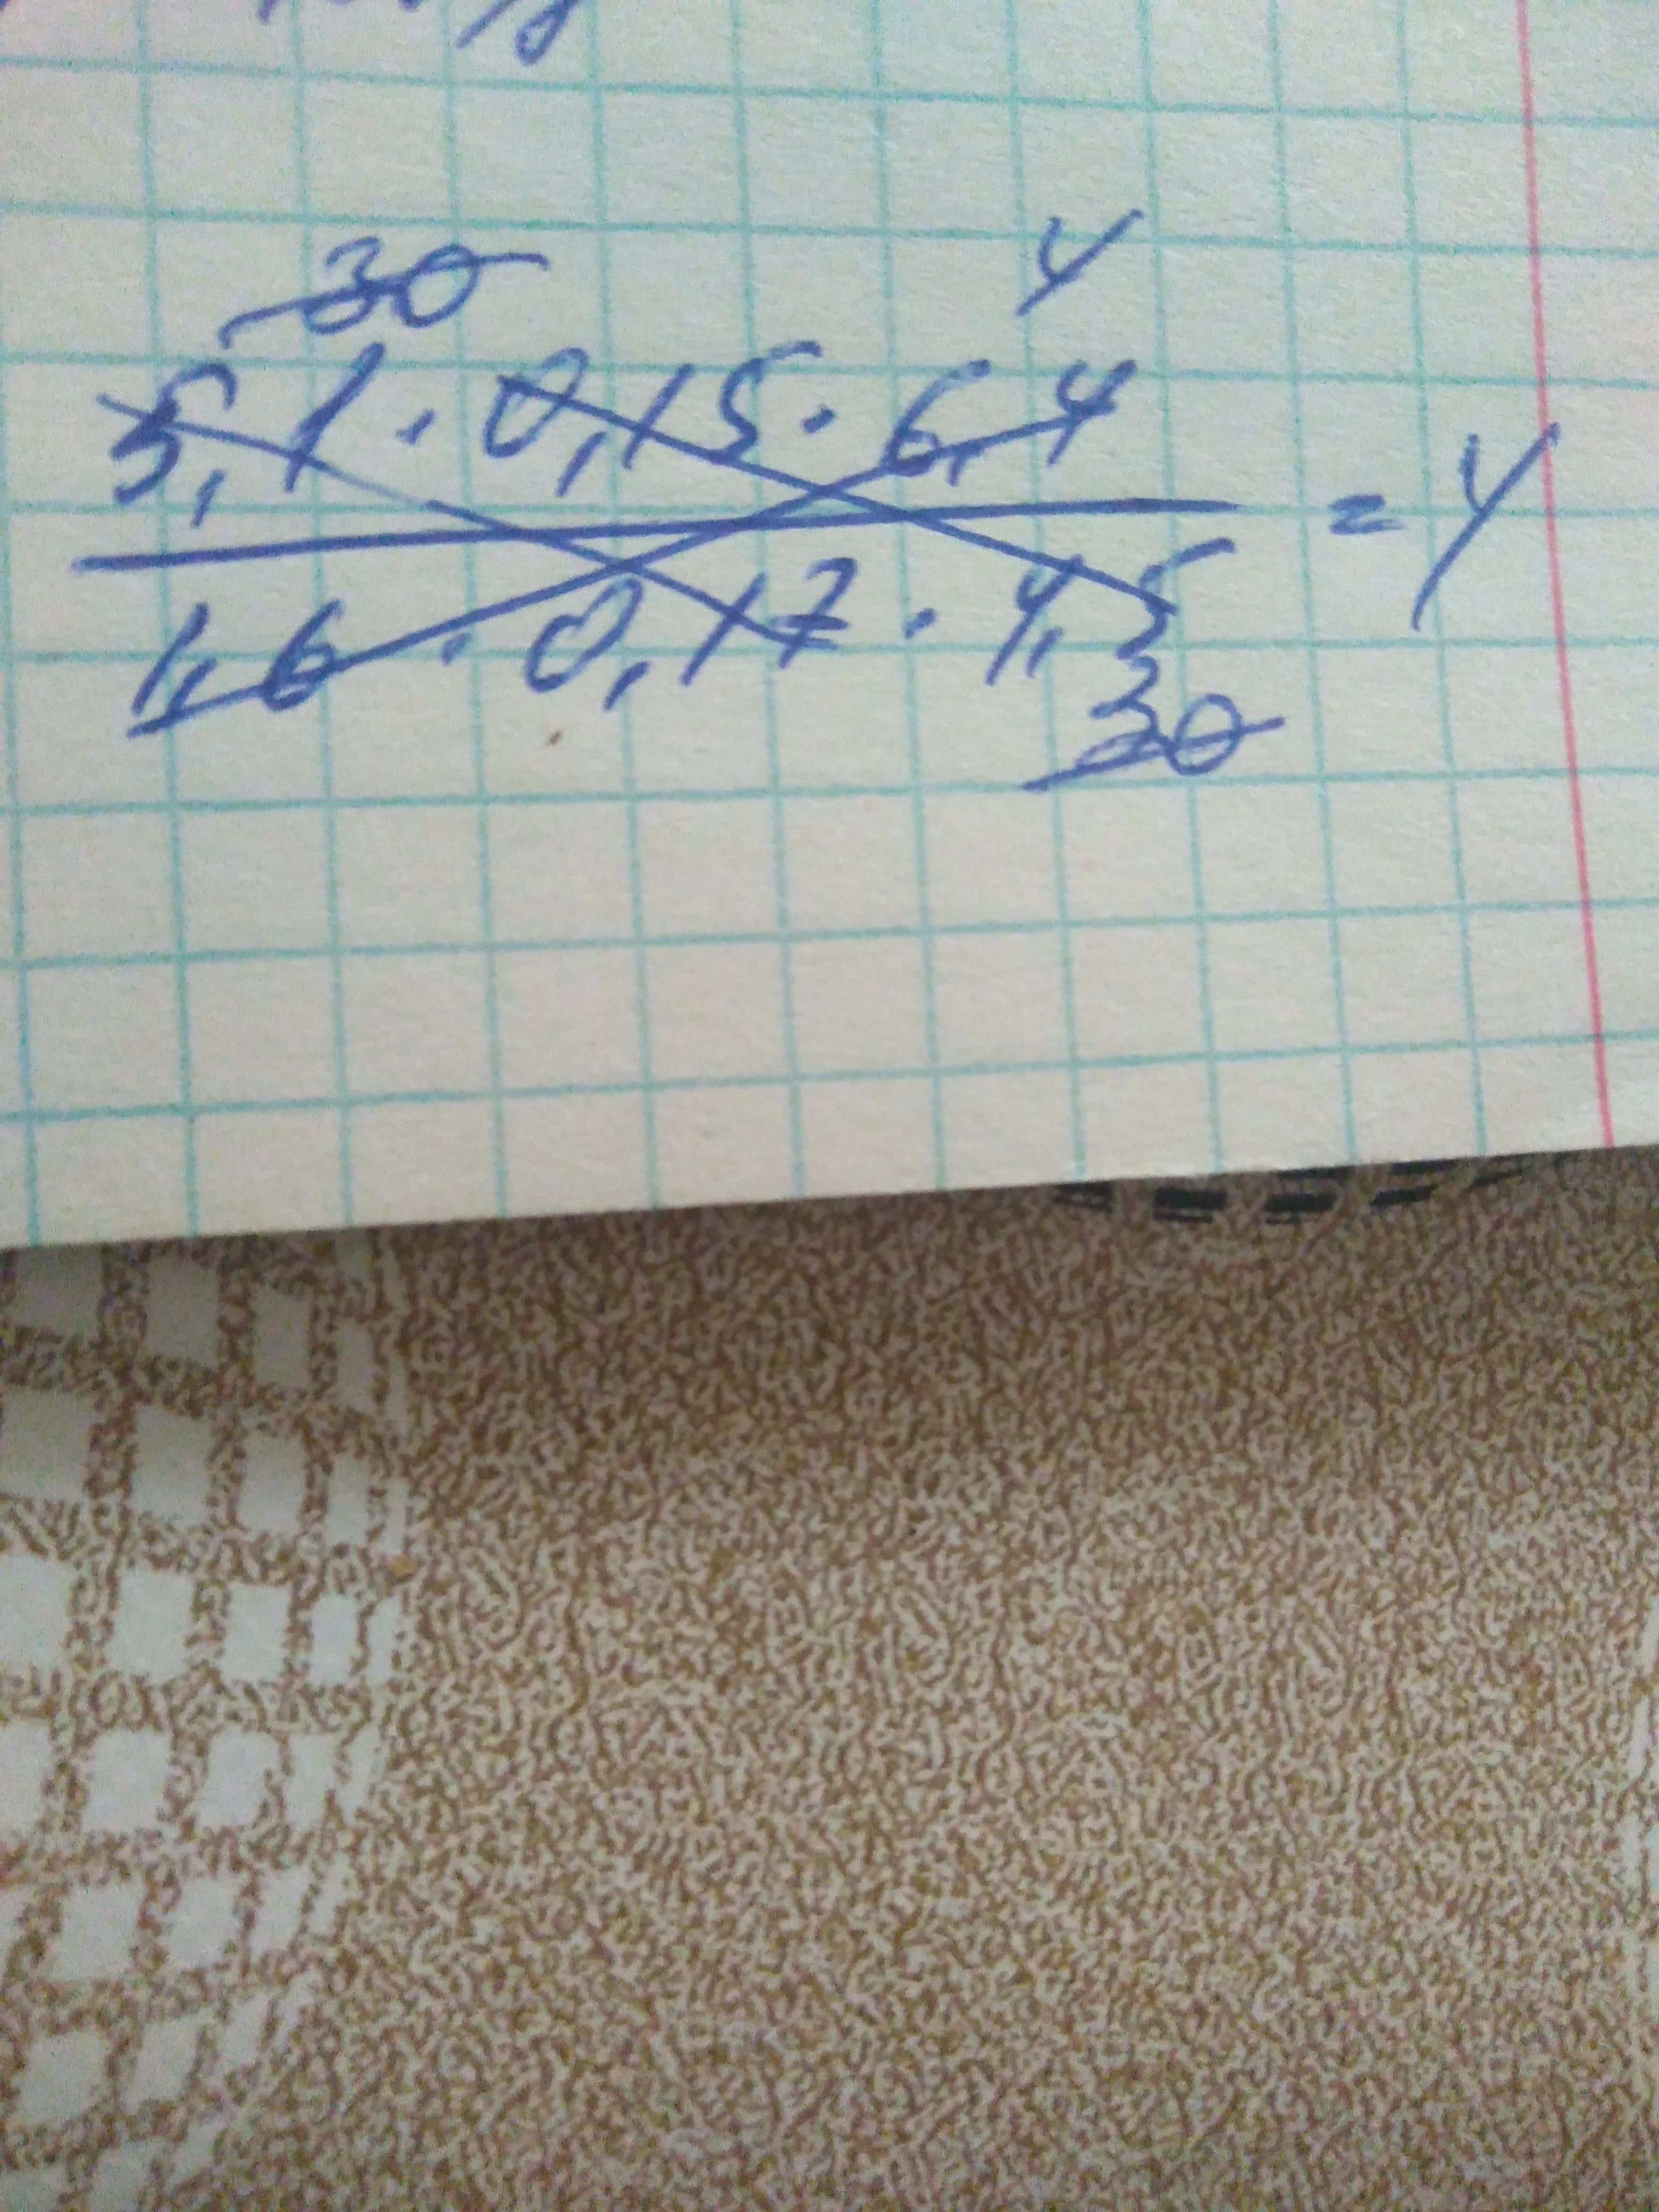 30 4
5,1 · 0,15 · 6,4
1,6 · 0,17 · 4,5
= 4
30